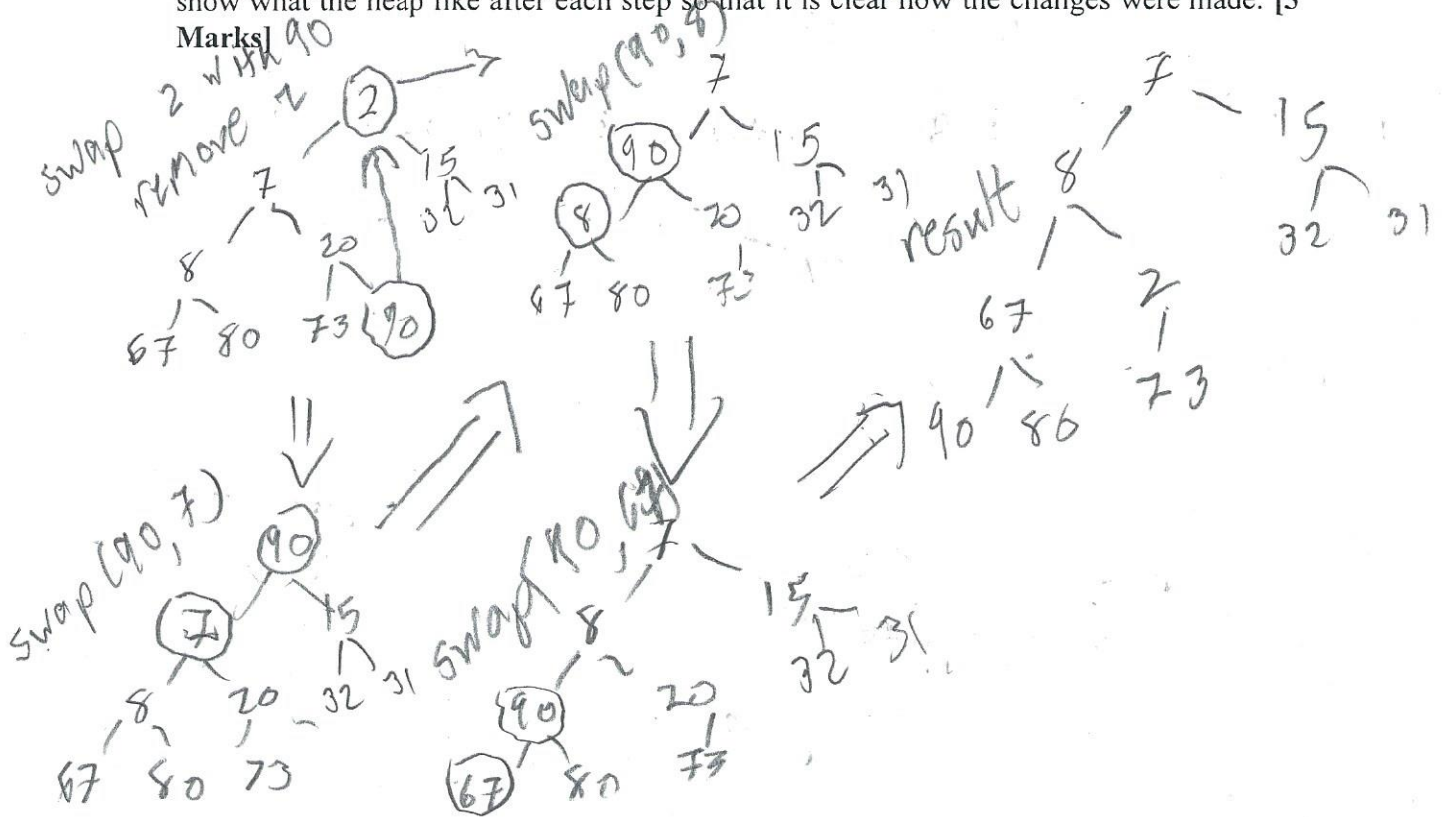 show what the heap like after each step so that it is clear how the changes were made. [5
Marks]
swap 2 with 90
remove 2
2
7 15
8 20 32 31
67 80 73 90
swap(90,8)
7
90 15
8 20 32 31
67 80 73
result
7
8 15
67 2 32 31
90 80 73
swap(90,7)
90
7 15
8 20 32 31
67 80 73
swap(90,
7
8 15
90 20 32 31
67 80 73